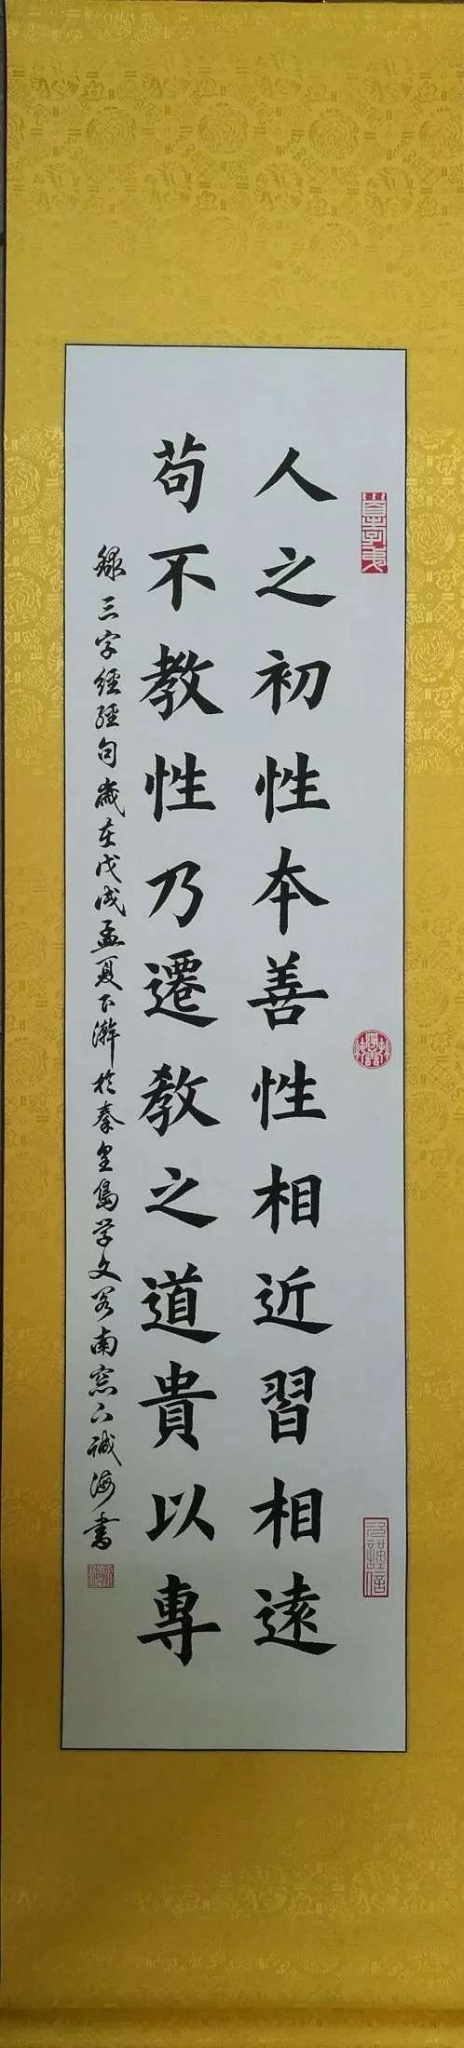 人之初性本善性相近習相遠
苟不教性乃遷教之道貴以專
錄三字經經句歲在戊戌孟夏下澣於秦皇島学文名南窓下诚海書